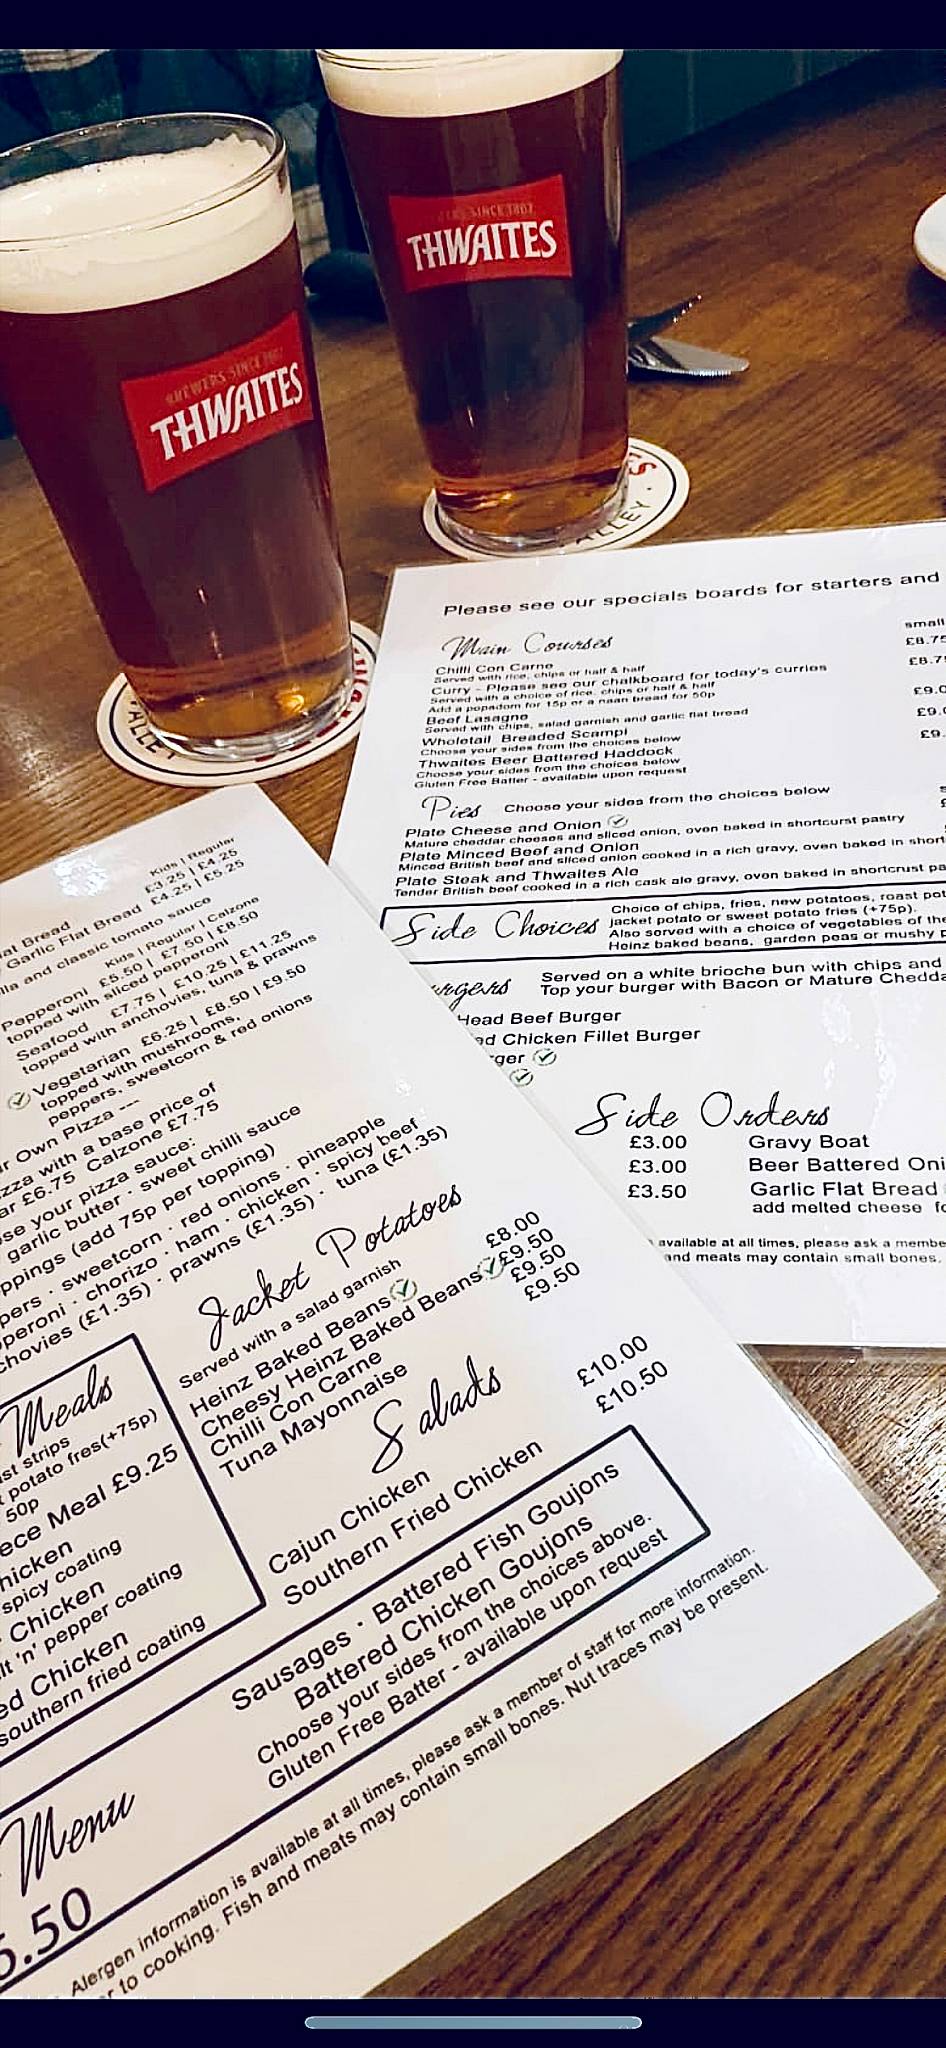 BREWERS SINCE 1807
THWAITES
SINCE 1807
THWAITES
ALLEY
ALLEY ·
Please see our specials boards for starters and
Main Courses
small
Chilli Con Carne
£8.75
Served with rice, chips or half & half
Curry - Please see our chalkboard for today's curries
Served with a choice of rice, chips or half & half
Add a popadom for 15p or a naan bread for 50p
Beef Lasagne
Served with chips, salad garnish and garlic flat bread
Wholetail Breaded Scampi
Choose your sides from the choices below
Thwaites Beer Battered Haddock
Choose your sides from the choices below
Gluten Free Batter - available upon request
Pies Choose your sides from the choices below
Plate Cheese and Onion
Mature cheddar cheeses and sliced onion, oven baked in shortcurst pastry
Plate Minced Beef and Onion
Minced British beef and sliced onion cooked in a rich gravy, oven baked in short
Plate Steak and Thwaites Ale
Tender British beef cooked in a rich cask ale gravy, oven baked in shortcrust pa
Side Choices
Choice of chips, fries, new potatoes, roast pot
jacket potato or sweet potato fries (+75p).
Also served with a choice of vegetables of the
Heinz baked beans, garden peas or mushy p
urgers
Served on a white brioche bun with chips and
Top your burger with Bacon or Mature Chedda
Head Beef Burger
ed Chicken Fillet Burger
rger
Side Orders
£3.00 Gravy Boat
£3.00 Beer Battered Oni
£3.50 Garlic Flat Bread
add melted cheese fo
available at all times, please ask a membe
and meats may contain small bones.
Kids | Regular
at Bread £3.25 | £4.25
Garlic Flat Bread £4.25 | £5.25
lla and classic tomato sauce
Kids | Regular | Calzone
Pepperoni £5.50 | £7.50 | £8.50
topped with sliced pepperoni
Seafood £7.75 | £10.25 | £11.25
topped with anchovies, tuna & prawns
Vegetarian £6.25 | £8.50 | £9.50
topped with mushrooms,
peppers, sweetcorn & red onions
r Own Pizza ---
zza with a base price of
ar £6.75 Calzone £7.75
se your pizza sauce:
garlic butter · sweet chilli sauce
ppings (add 75p per topping)
pers · sweetcorn · red onions · pineapple
peroni · chorizo · ham · chicken · spicy beef
chovies (£1.35) · prawns (£1.35) · tuna (£1.35)
Jacket Potatoes
Served with a salad garnish
Heinz Baked Beans £8.00
Cheesy Heinz Baked Beans £9.50
Chilli Con Carne £9.50
Tuna Mayonnaise £9.50
Salads
Cajun Chicken £10.00
Southern Fried Chicken £10.50
Meals
st strips
potato fres(+75p)
50p
ece Meal £9.25
hicken
spicy coating
Chicken
lt 'n' pepper coating
ed Chicken
southern fried coating
Sausages · Battered Fish Goujons
Battered Chicken Goujons
Choose your sides from the choices above.
Gluten Free Batter - available upon request
Menu
5.50
Alergen information is available at all times, please ask a member of staff for more information.
r to cooking. Fish and meats may contain small bones. Nut traces may be present.